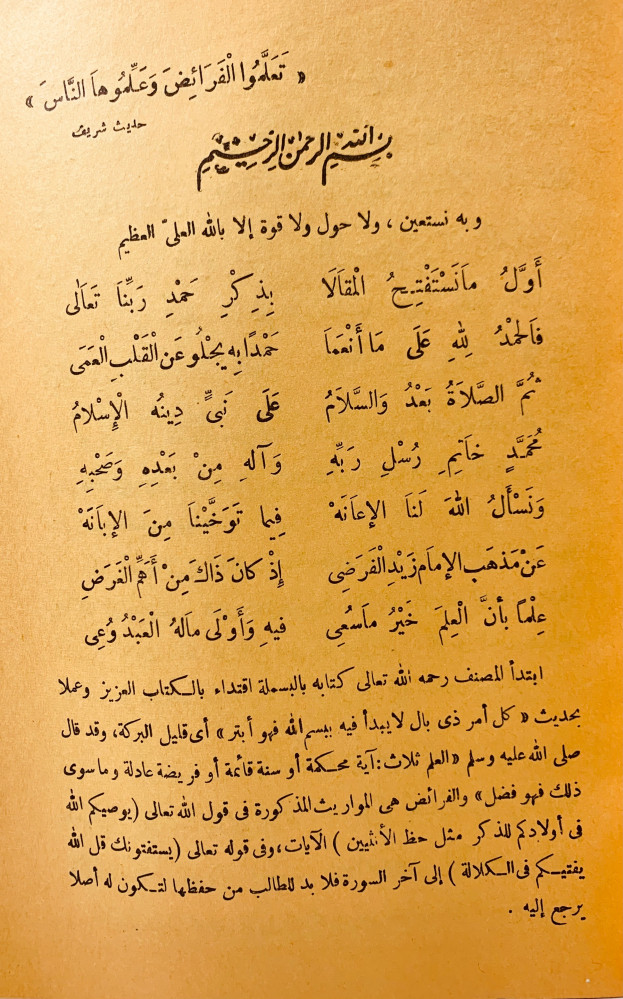 « تَعَلَّمُوا الْفَرَائِضَ وَعَلِّمُوهاَ النَّاسَ »
حديث شريف
بِسْمِ اللهِ الرحمٰنِ الرَّحِيمِ
وبه نستعين ، ولا حول ولا قوة إلا بالله العلىّ العظيم
أَوَّلُ ماَ نَسْتَفْتِحُ الْمَقَالَا بِذِكْرِ حَمْدِ رَبِّناَ تَعَالَى
فَالحَمْدُ لِلهِ عَلَى مَا أَنْعَماَ حَمْدًا بِهِ يجْلُو عَنِ الْقَلْبِ الْعَمَى
ثُمَّ الصَّلاَةُ بَعْدُ وَالسَّلاَمُ عَلَى نَبىٍّ دِينُه الْإِسْلاَمُ
مُحَمَّدٍ خاَتِمِ رُسْلِ رَبِّهِ وَآلهِ مِنْ بَعْدِهِ وَصَحْبِهِ
وَنَسْأَلُ اللهَ لَناَ الإِعاَنَهْ فِيما تَوَخَّيْناَ مِنَ الإِبانَهْ
عَنْ مَذهَبِ الإِمامِ زَيْدِ الْفَرَضِى إِذْ كانَ ذَاكَ مِنْ أَهَمِّ الْغَرَضِ
عِلْماً بأَنَّ الْعِلمَ خَيْرُ ماَ سُعِى فيهِ وَأَوْلَى مالهُ الْعَبْدُ وُعِى
ابتدأ المصنف رحمه الله تعالى كتابه بالبسملة اقتداء بالكتاب العزيز وعملا
بحديث « كل أمر ذى بال لا يبدأ فيه ببسم الله فهو أبتر » أى قليل البركة، وقد قال
صلى الله عليه وسلم «العلم ثلاث: آية محكمة أو سنة قائمة أو فريضة عادلة وما سوى
ذلك فهو فضل» والفرائض هى المواريث المذكورة فى قول الله تعالى (يوصيكم الله
فى أولادكم للذكر مثل حظ الأنثيين ) الآيات، وفى قوله تعالى (يستفتونك قل الله
يفتيكم فى الكلالة ) إلى آخر السورة فلا بد للطالب من حفظها لتكون له أصلا
يرجع إليه .